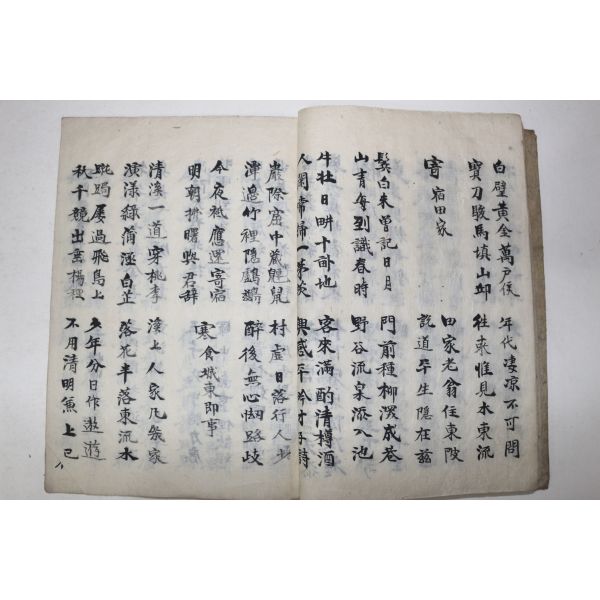 白璧黃金萬戶侯
寶刀駿馬填山邱
年代凄凉不可問
往來惟見水東流
寄宿田家
田家老翁住東陂
說道平生隱在玆
鬓白未曾記日月
山青每到識春時
門前種柳深成巷
野谷流泉添入池
牛壯日畊十畝地
人閑常掃一茅茨
客來滿酌清樽酒
興感平吟才子詩
巖際窟中藏鼴鼠
潭邉竹裡隱鸕鶿
村虛日落行人少
醉後無心怯路歧
今夜秪應還寄宿
明朝拂曙與君辞
寒食城東即事
清溪一道穿桃李
演漾綠蒲涵白芷
溪上人家凡幾家
落花半落東流水
蹴踘屢過飛鳥上
秋千競出垂楊裡
少年分日作遨遊
不用清明兼上巳